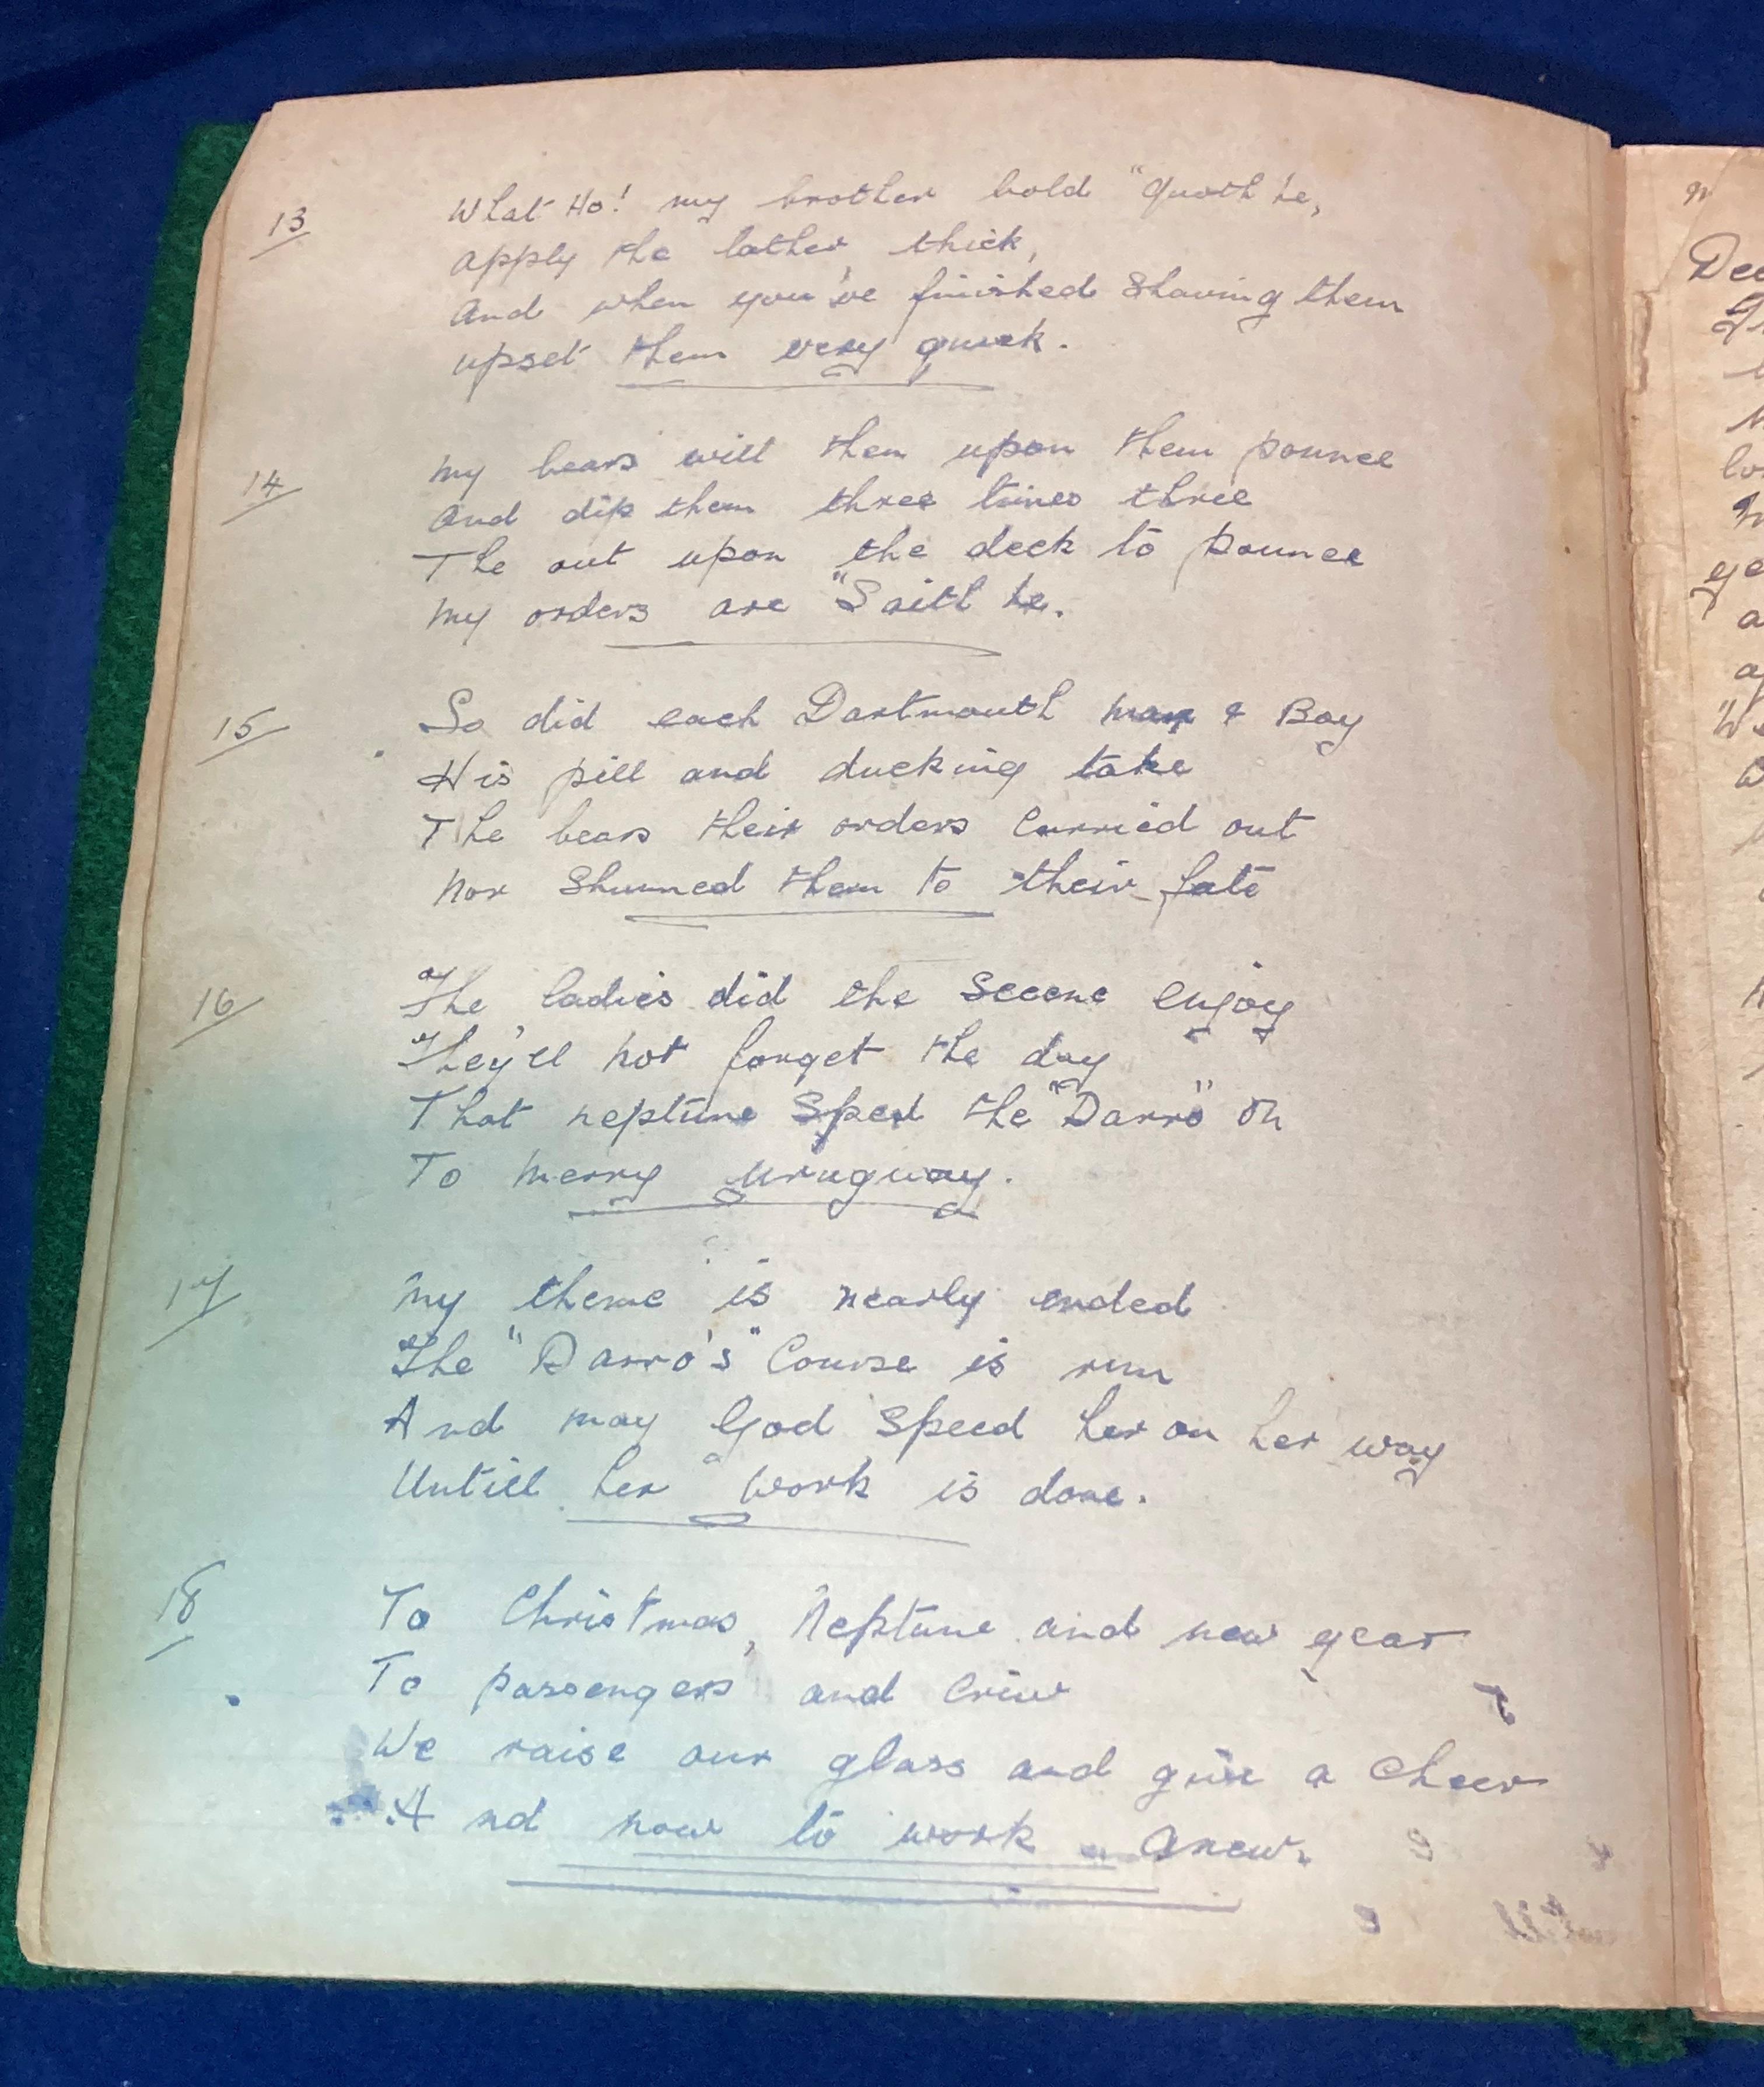 13
What Ho! my brother bold "Quoth he,
apply the lather thick,
And when you've finished shaving them
upset them very quick.
14
my bears will them upon them pounce
And dip them three times three
The out upon the deck to pounce
my orders are "Saith he.
15
So did each Dartmouth man & Boy
His pill and ducking take
The bears their orders carried out
Nor shunned them to their fate
16
The ladies did the Sceene enjoy
They'll not forget the day
That neptune Sped the "Darro" on
To merry Uruguay.
17
My theme is nearly ended
The "Darro's" Course is run
And may God Speed her on her way
Untill her work is done.
18
To Christmas, Neptune and new year
To passengers and Crew
We raise our glass and give a Cheer
And now to work anew.